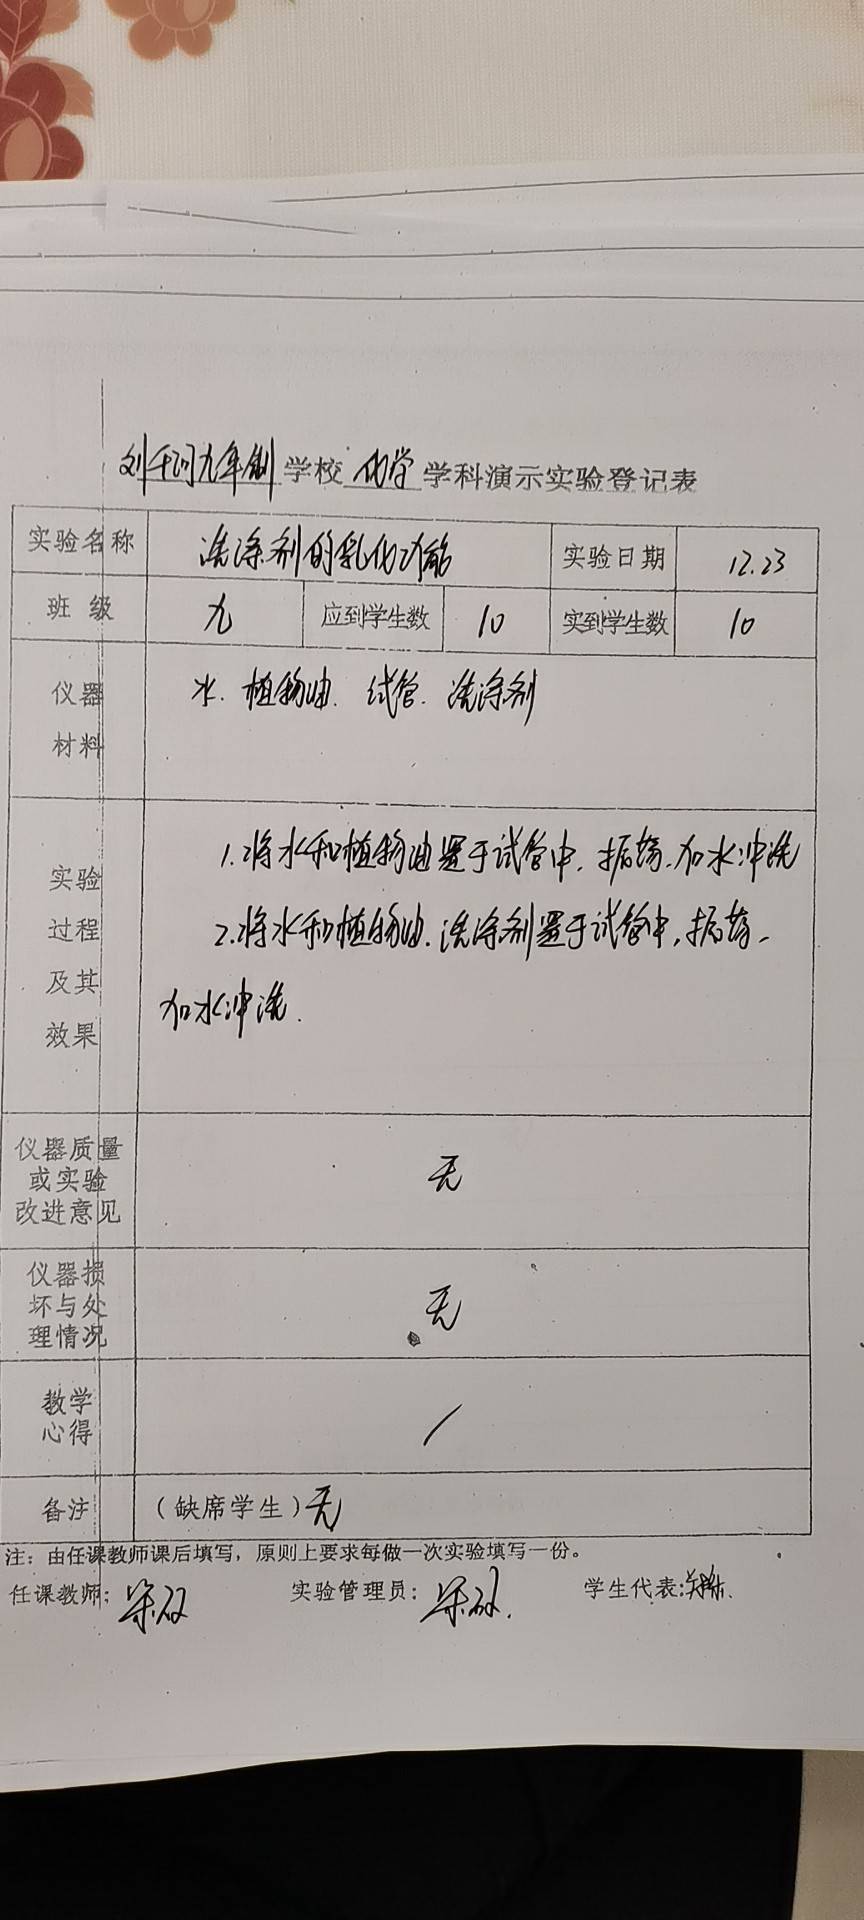 刘千河九年制学校 化学 学科演示实验登记表
实验名称 洗涤剂的乳化功能 实验日期 12.23
班 级 九 应到学生数 10 实到学生数 10
仪器 水. 植物油. 试管. 洗涤剂
材料
实验 1.将水和植物油置于试管中,振荡,加水冲洗
过程 2.将水和植物油.洗涤剂置于试管中,振荡,
及其 加水冲洗.
效果
仪器质量
或实验 无
改进意见
仪器损
坏与处 无
理情况
教学
心得 /
备注 (缺席学生)无
注：由任课教师课后填写，原则上要求每做一次实验填写一份。
任课教师： 实验管理员： 学生代表: